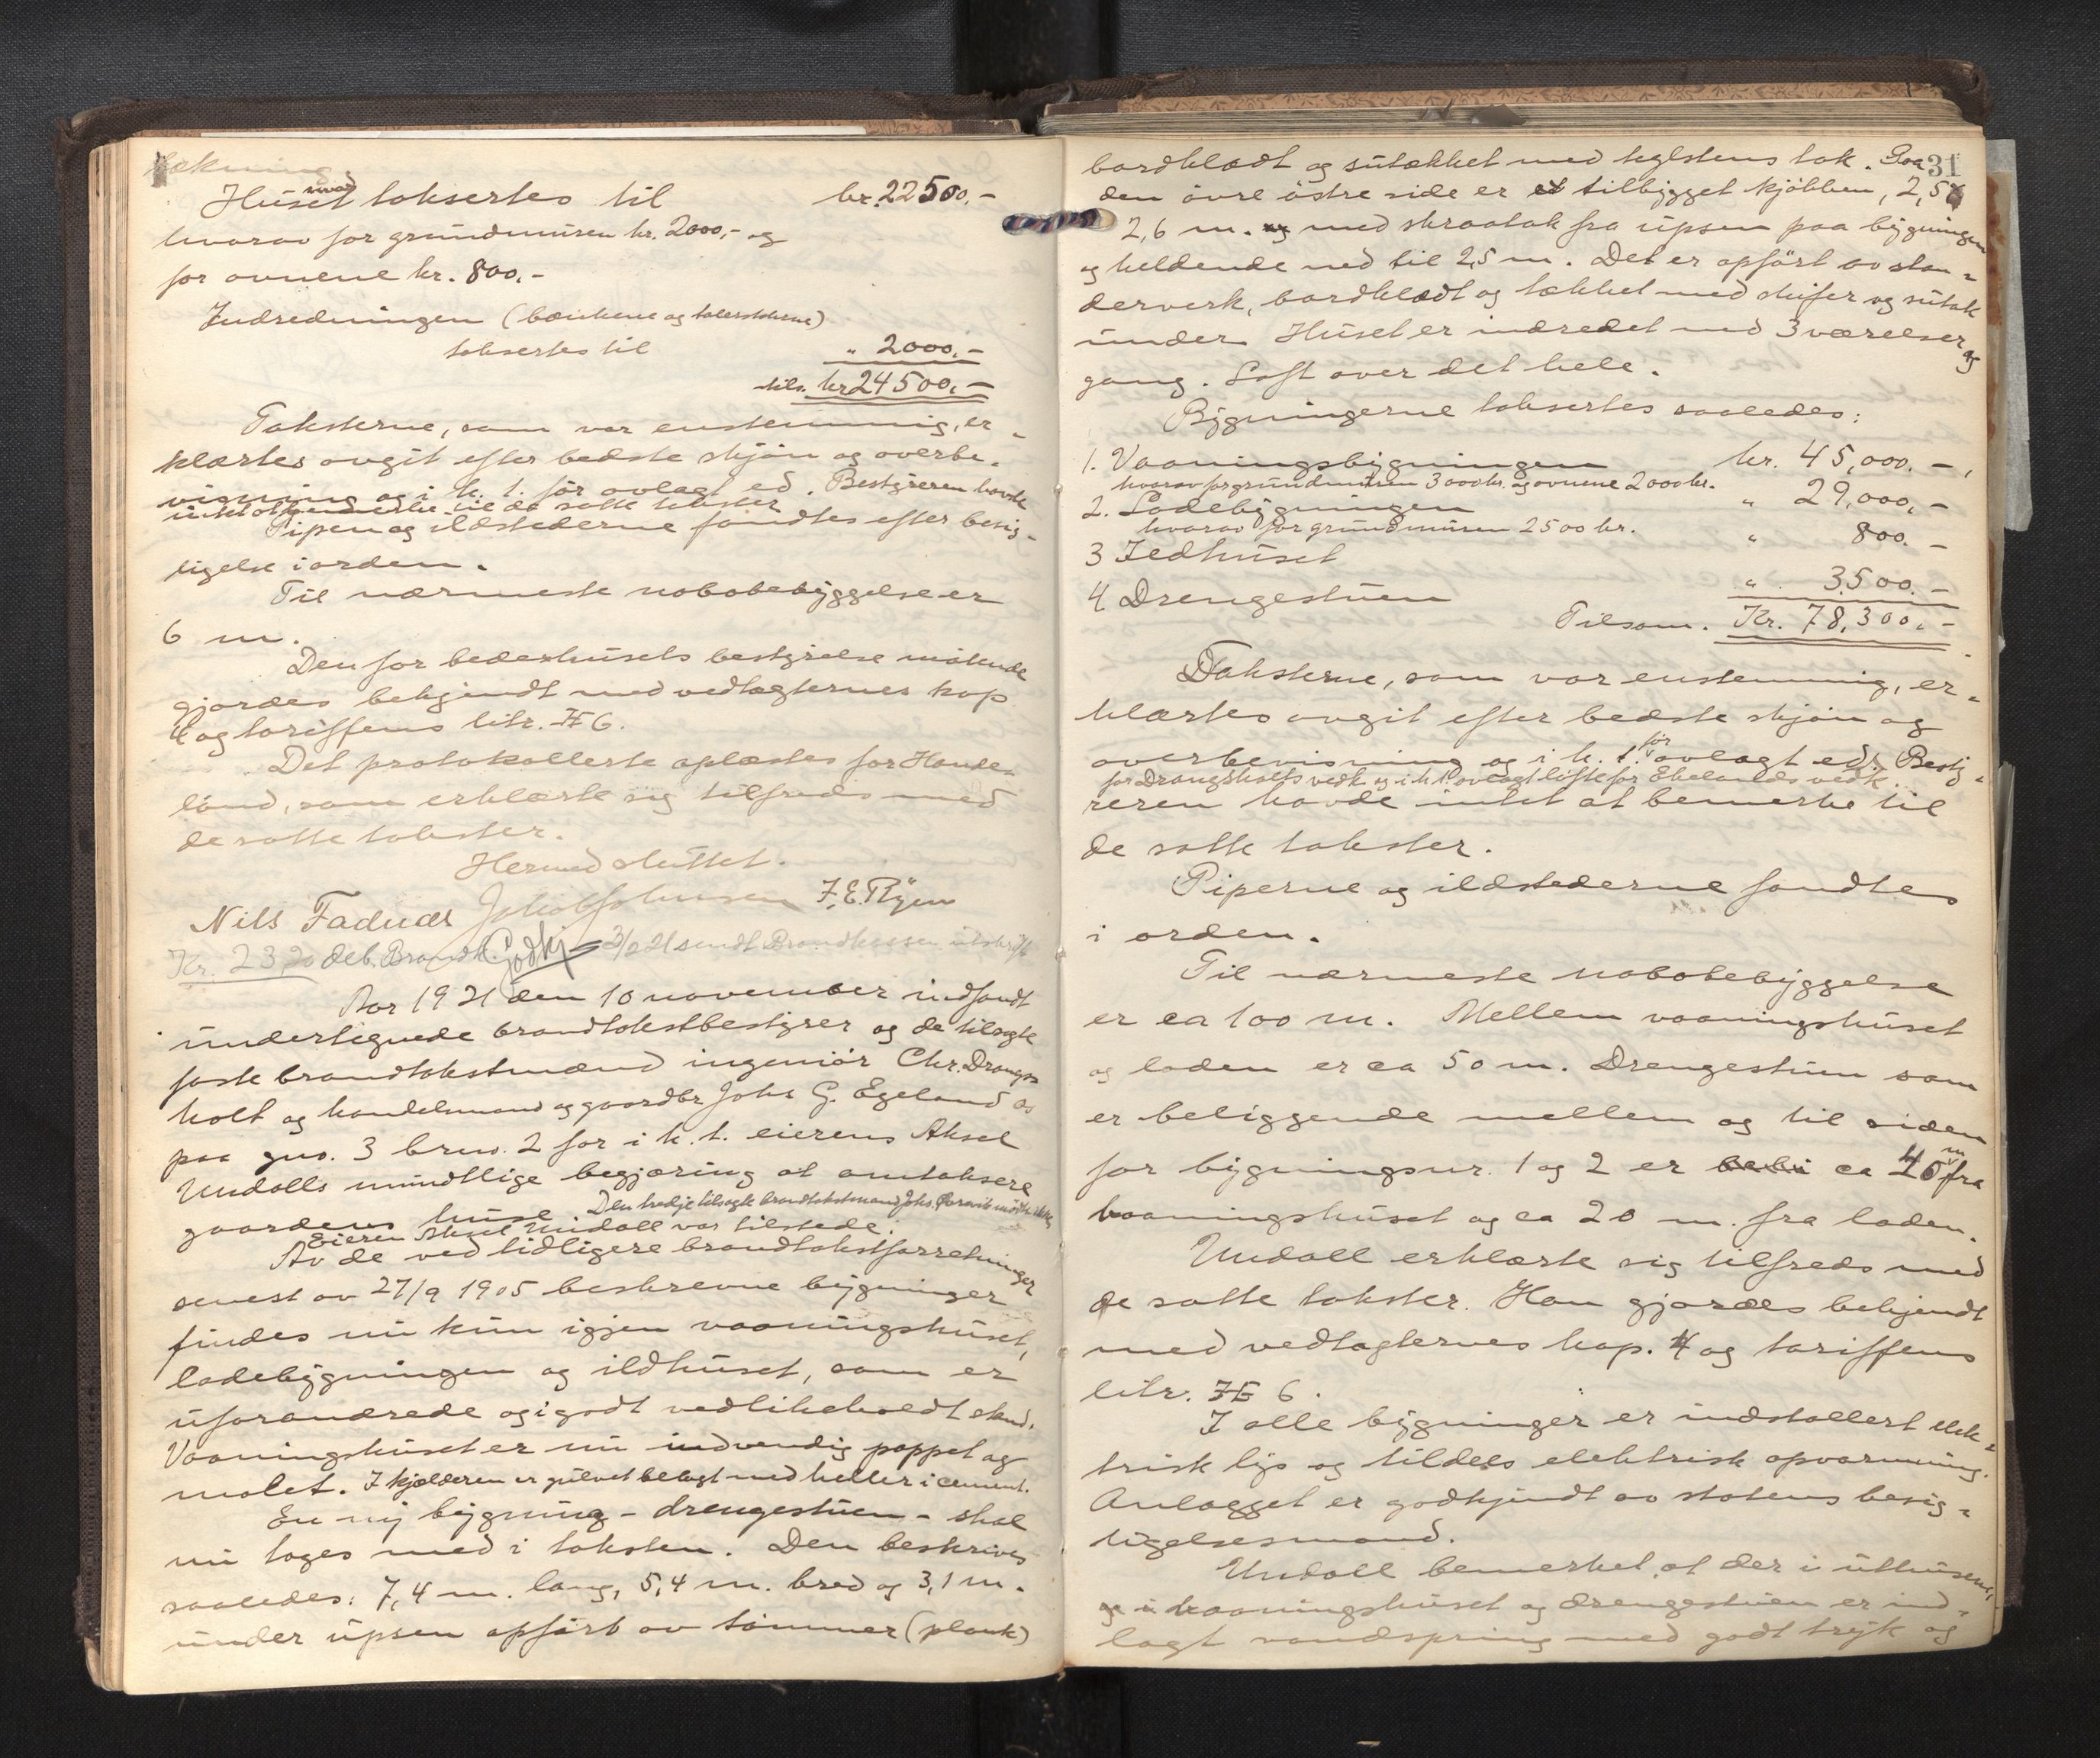 tækning.
Huset takseertes til kr. 22500,-
hvorav for grundmuren kr. 2000,- og
for ovnene kr. 800,-
Indredningen (bænkene og talerstolene)
taksertes til " 2000,-
tils. kr 24500,-
Taksterne, som var enstemmig, er-
klærtes avgit efter bedste skjön og overbe-
visning og i h. t. för avlagt ed. Bestyreren havde
intet at bemerke til de satte takster
Pipen og ildstederne fandtes efter besig-
tigelse i orden.
Til nærmeste nabobebyggelse er
6 m.
Den for bedehusets bestyrelse mötende
gjordes bekjendt med vedtægternes kap
4 og tariffens litr. H 6.
Det protokollerte oplæstes for Hande-
land, som erklærte sig tilfreds med
de satte takster.
Hermed sluttet.
Nils Fadnes Jakob Johnsen F. E. Röjen
Kr. 23,20 deb. Brandk. Godkj 3/2 21 sendt Brandkassen utskrift
Aar 1921 den 10 november indfandt
undertegnede brandtakstbestyrer og de tilsagte
faste brandtakstmænd ingeniör Chr. Drangs-
holt og handelsmand og gaardbr Johs G. Egeland os
paa gno. 3 brno. 2 for i h. t. eierens Aksel
Undalls mundtlige begjæring at omtaksere
gaardens huse. Den tredje tilsagte brandtakstmand Johs. mötte ikke
Eieren Aksel Undall var tilstede.
Av de ved tidligere brandtakstforretninger
senest av 27/9 1905 beskrevne bygninger
findes nu kun igjen vaaningshuset,
ladebygningen og ildhuset, som er
uforandrede og i godt vedlikeholdt stand.
Vaaningshuset er nu indvendig pappet og
malet. I kjælderen er gulvet belagt med heller i cement.
En ny bygning - drengestuen - skal
nu tages med i taksten. Den beskrives
saaledes: 7,4 m. lang, 5,4 m. bred og 3,1 m.
under upsen opfört av tömmer (plank)
31
bordklædt og sutækket med teglstens tak. Paa
den övre östre side er et tilbygget kjökken, 2,5 x
2,6 m. med skraatak fra upsen paa bygningen
og heldende ned til 2,5 m. Det er opfört av stan-
derverk, bordklædt og tækket med skifer og sutak
under. Huset er indredet med 3 værelser og
gang. Loft over det hele.
Bygningerne taksertes saaledes:
1. Vaaningsbygningen kr. 45,000.-,
hvorav for grundmuren 3000 kr. og ovnene 2000 kr.
2. Ladebygningen " 29,000,-
hvorav for grundmuren 2500 kr.
3 Ildhuset " 800.-
4 Drengestuen " 3500.-
Tilsam. Kr. 78,300,-
Taksterne, som var enstemmig, er-
klærtes avgit efter bedste skjön og
overbevisning og i h. t. för avlagt ed. Besty-
for Drangsholts vedk. og i h. t. avlagt löfte for Egelands vedk.
reren havde intet at bemerke til
de satte takster.
Piperne og ildstederne fandtes
i orden.
Til nærmeste nabobebyggelse
er ca 100 m. Mellem vaaningshuset
og laden er ca 50 m. Drengestuen som
er beliggende mellem og til siden
for bygningsnr. 1 og 2 er ca 40 m fra
vaaningshuset og ca 20 m. fra laden.
Undall erklærte sig tilfreds med
de satte takster. Han gjordes bekjendt
med vedtægternes kap. 4 og tariffens
litr. H 6.
I alle bygninger er indstallert elek-
trisk lys og tildels elektrisk opvarmning.
Anlægget er godkjendt av statens besig-
tigelsesmand.
Undall bemerket, at der i uthusene,
i vaaningshuset og drengestuen er ind-
lagt vandspring med godt tryk og